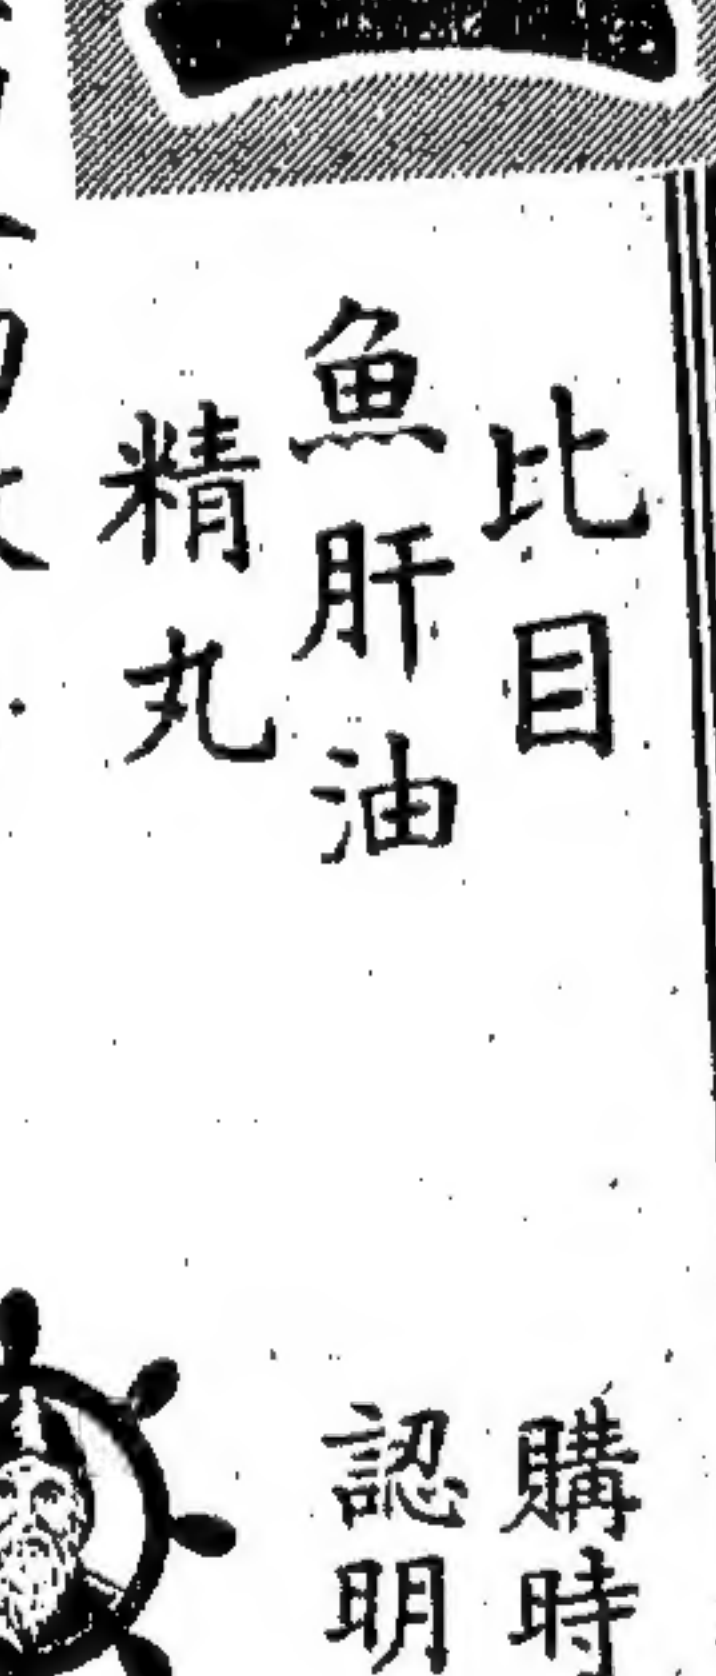 比目
魚肝油
精丸
購時
認明